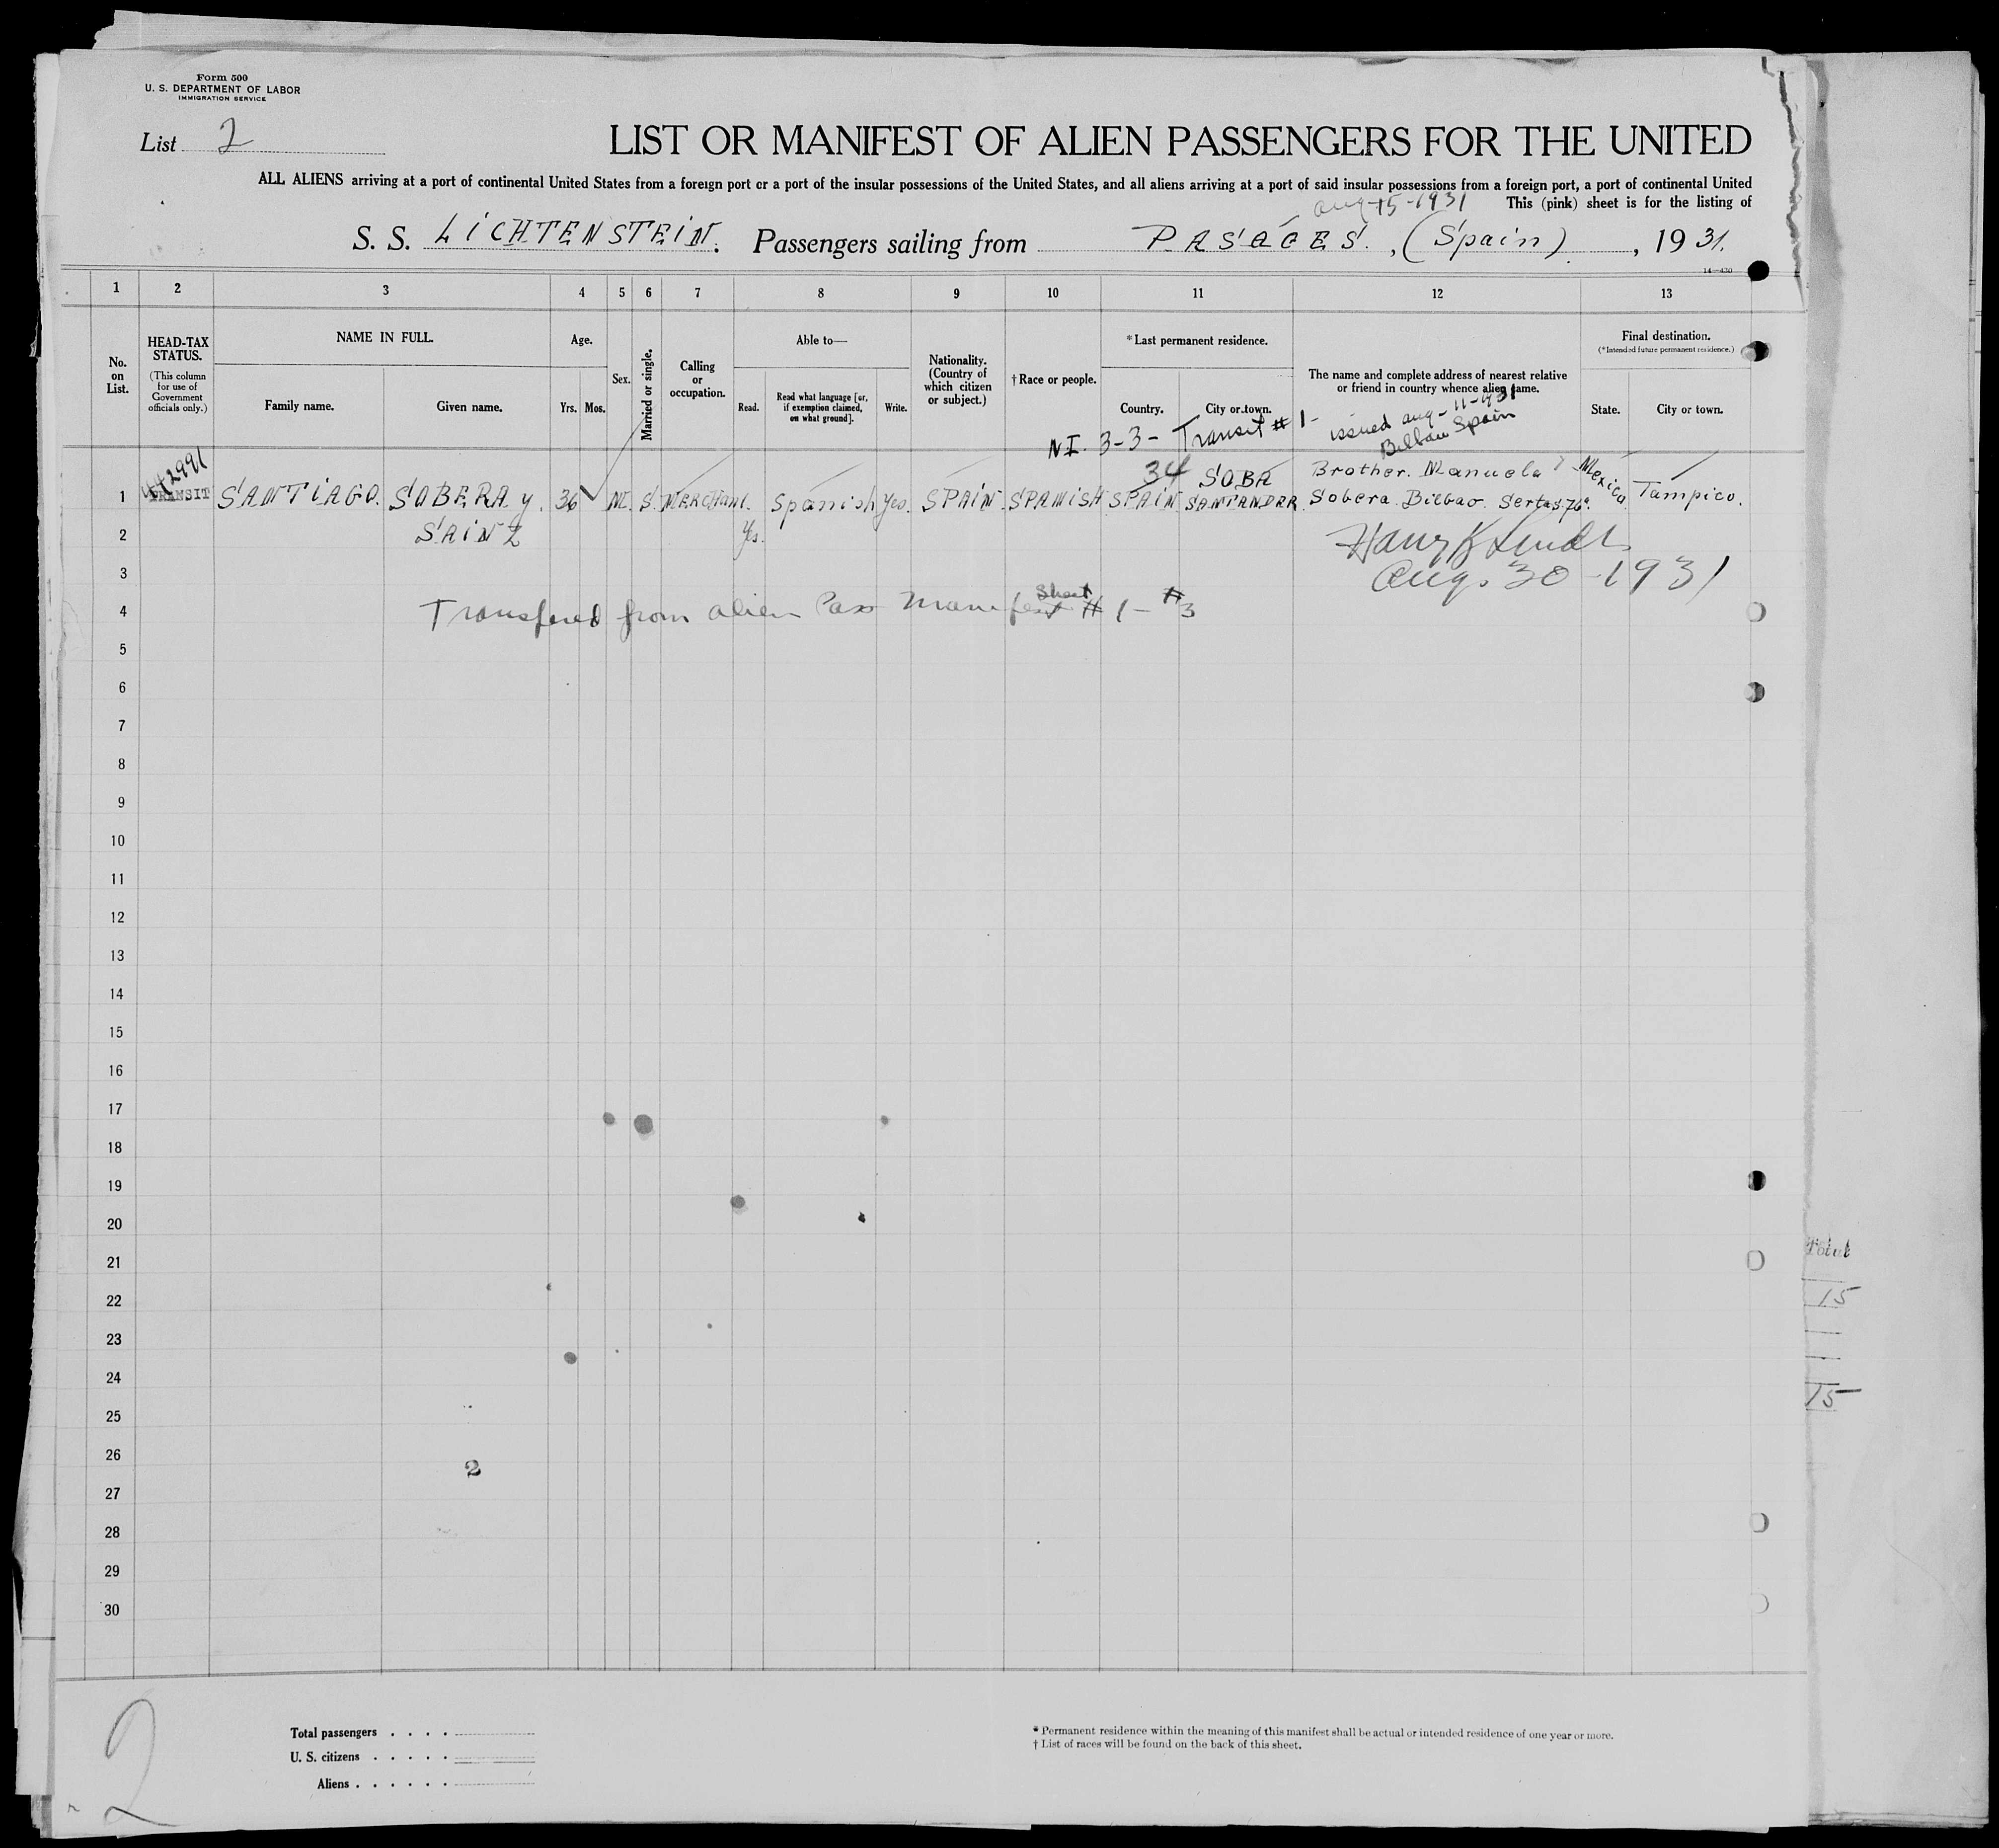 Form 500
U. S. DEPARTMENT OF LABOR
IMMIGRATION SERVICE
List 2
LIST OR MANIFEST OF ALIEN PASSENGERS FOR THE UNITED
ALL ALIENS arriving at a port of continental United States from a foreign port or a port of the insular possessions of the United States, and all aliens arriving at a port of said insular possessions from a foreign port, a port of continental United
This (pink) sheet is for the listing of
Aug-15-1931
S. S. LICHTENSTEIN. Passengers sailing from PASAGES., (Spain), 1931.
14-430
1 2 3 4 5 6 7 8 9 10 11 12 13
No. on List.
HEAD-TAX STATUS.
(This column for use of Government officials only.)
NAME IN FULL.
Family name. Given name.
Age.
Yrs. Mos.
Sex.
Married or single.
Calling or occupation.
Able to—
Read. Read what language [or, if exemption claimed, on what ground]. Write.
Nationality. (Country of which citizen or subject.)
† Race or people.
* Last permanent residence.
Country. City or town.
The name and complete address of nearest relative or friend in country whence alien came.
Final destination.
(* Intended future permanent residence.)
State. City or town.
NI. 3-3- Transit # 1- issued Aug-11-1931
Bilbau Spain
34 SOBA Brother. Manuela
1 TRANSIT SANTIAGO. SOBERA y. 36 M. S. Merchant. Spanish Yes. SPAIN. SPANISH SPAIN SANTANDER. Sobera. Bilbao. Mexico Tampico.
2 SAINZ Yes.
Aug. 30-1931
3
4 Transfered from alien Pass Manifest Sheet # 1 - #3
5
6
7
8
9
10
11
12
13
14
15
16
17
18
19
20
21
22
23
24
25
26
2
27
28
29
30
Total
15
15
2
Total passengers . . . .
U. S. citizens . . . . .
Aliens . . . . . .
* Permanent residence within the meaning of this manifest shall be actual or intended residence of one year or more.
† List of races will be found on the back of this sheet.